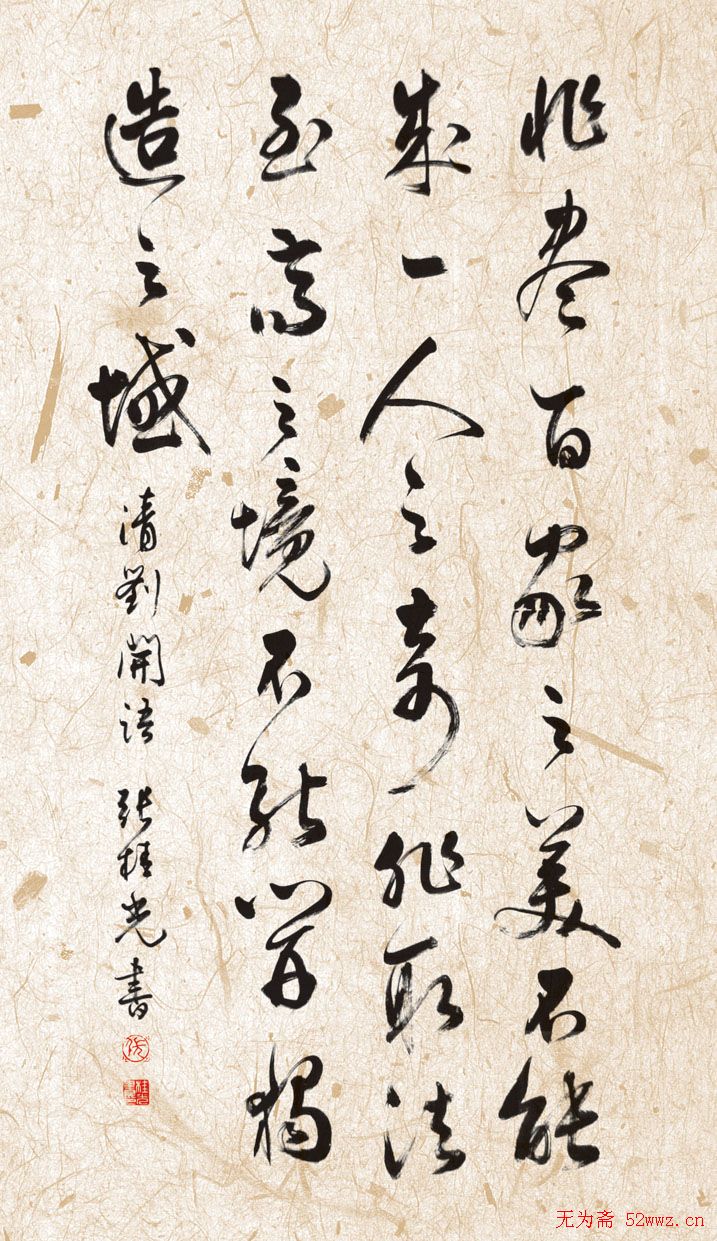 非尽百家之美不能
成一人之奇非取法
至高之境不能開獨
造之域
清劉開语 张桂光書
无为斋 52wwz.cn